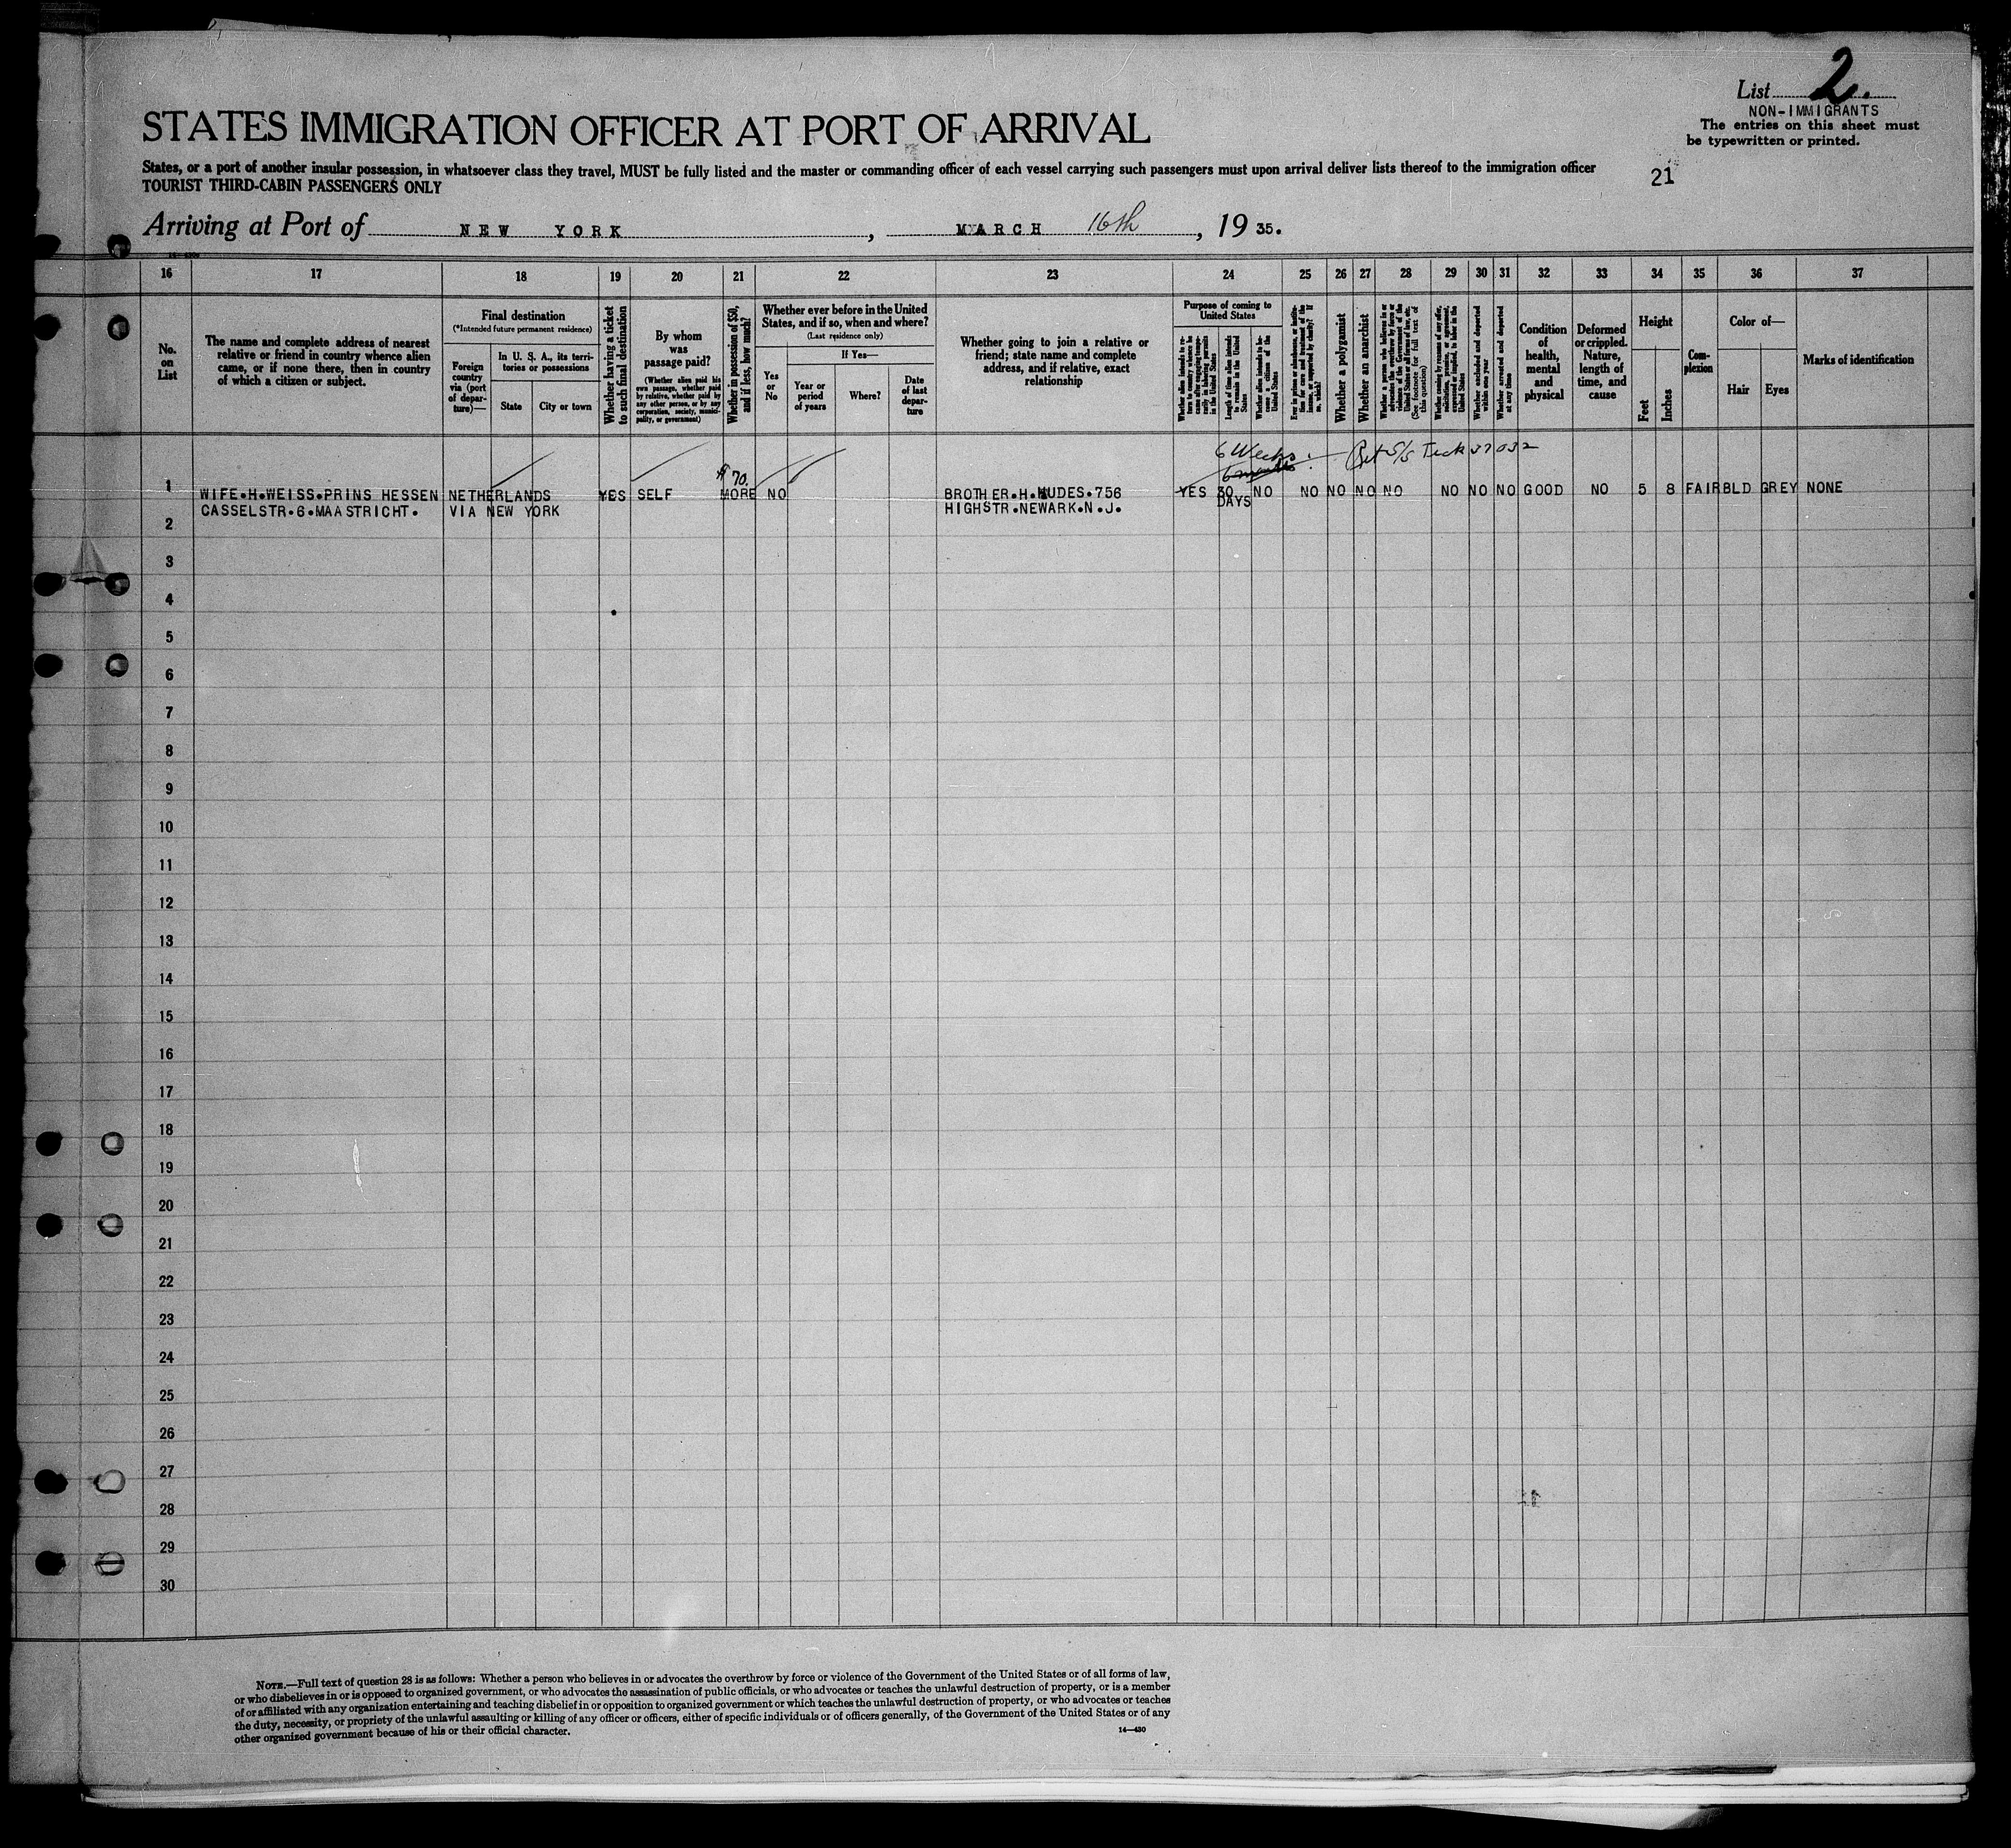 List 2.
NON-IMMIGRANTS
The entries on this sheet must
be typewritten or printed.
STATES IMMIGRATION OFFICER AT PORT OF ARRIVAL
States, or a port of another insular possession, in whatsoever class they travel, MUST be fully listed and the master or commanding officer of each vessel carrying such passengers must upon arrival deliver lists thereof to the immigration officer
TOURIST THIRD-CABIN PASSENGERS ONLY
21
Arriving at Port of NEW YORK, MARCH 16th, 19 35.
16 17 18 19 20 21 22 23 24 25 26 27 28 29 30 31 32 33 34 35 36 37
No.
on
List
The name and complete address of nearest
relative or friend in country whence alien
came, or if none there, then in country
of which a citizen or subject.
Final destination
(*Intended future permanent residence)
Foreign
country
via (port
of depar-
ture)—
In U. S. A., its terri-
tories or possessions
State
City or town
Whether having a ticket
to such final destination
By whom
was
passage paid?
(Whether alien paid his
own passage, whether paid
by relative, whether paid by
any other person, or by any
corporation, society, munici-
pality, or government)
Whether in possession of $50,
and if less, how much?
Whether ever before in the United
States, and if so, when and where?
(Last residence only)
Yes
or
No
If Yes—
Year or
period
of years
Where?
Date
of last
depar-
ture
Whether going to join a relative or
friend; state name and complete
address, and if relative, exact
relationship
Purpose of coming to
United States
Length of time alien intends
to remain in the United
States
Whether alien intends to be-
come a citizen of the
United States
Whether a polygamist
Whether an anarchist
Whether excluded and deported
within one year
Whether arrested and deported
at any time
Condition
of
health,
mental
and
physical
Deformed
or crippled.
Nature,
length of
time, and
cause
Height
Feet
Inches
Com-
plexion
Color of—
Hair
Eyes
Marks of identification
6 Weeks
$ 70.
1 WIFE.H.WEISS.PRINS HESSEN NETHERLANDS YES SELF MORE NO BROTHER.H.HUDES.756 YES 30 NO NO NO NO NO NO NO NO GOOD NO 5 8 FAIR BLD GREY NONE
CASSELSTR.6.MAASTRICHT. VIA NEW YORK HIGHSTR.NEWARK.N.J. DAYS
2
3
4
5
6
7
8
9
10
11
12
13
14
15
16
17
18
19
20
21
22
23
24
25
26
27
28
29
30
NOTE.—Full text of question 28 is as follows: Whether a person who believes in or advocates the overthrow by force or violence of the Government of the United States or of all forms of law,
or who disbelieves in or is opposed to organized government, or who advocates the assassination of public officials, or who advocates or teaches the unlawful destruction of property, or is a member
of or affiliated with any organization entertaining and teaching disbelief in or opposition to organized government or which teaches the unlawful destruction of property, or who advocates or teaches
the duty, necessity, or propriety of the unlawful assaulting or killing of any officer or officers, either of specific individuals or of officers generally, of the Government of the United States or of any
other organized government because of his or their official character.
14—430